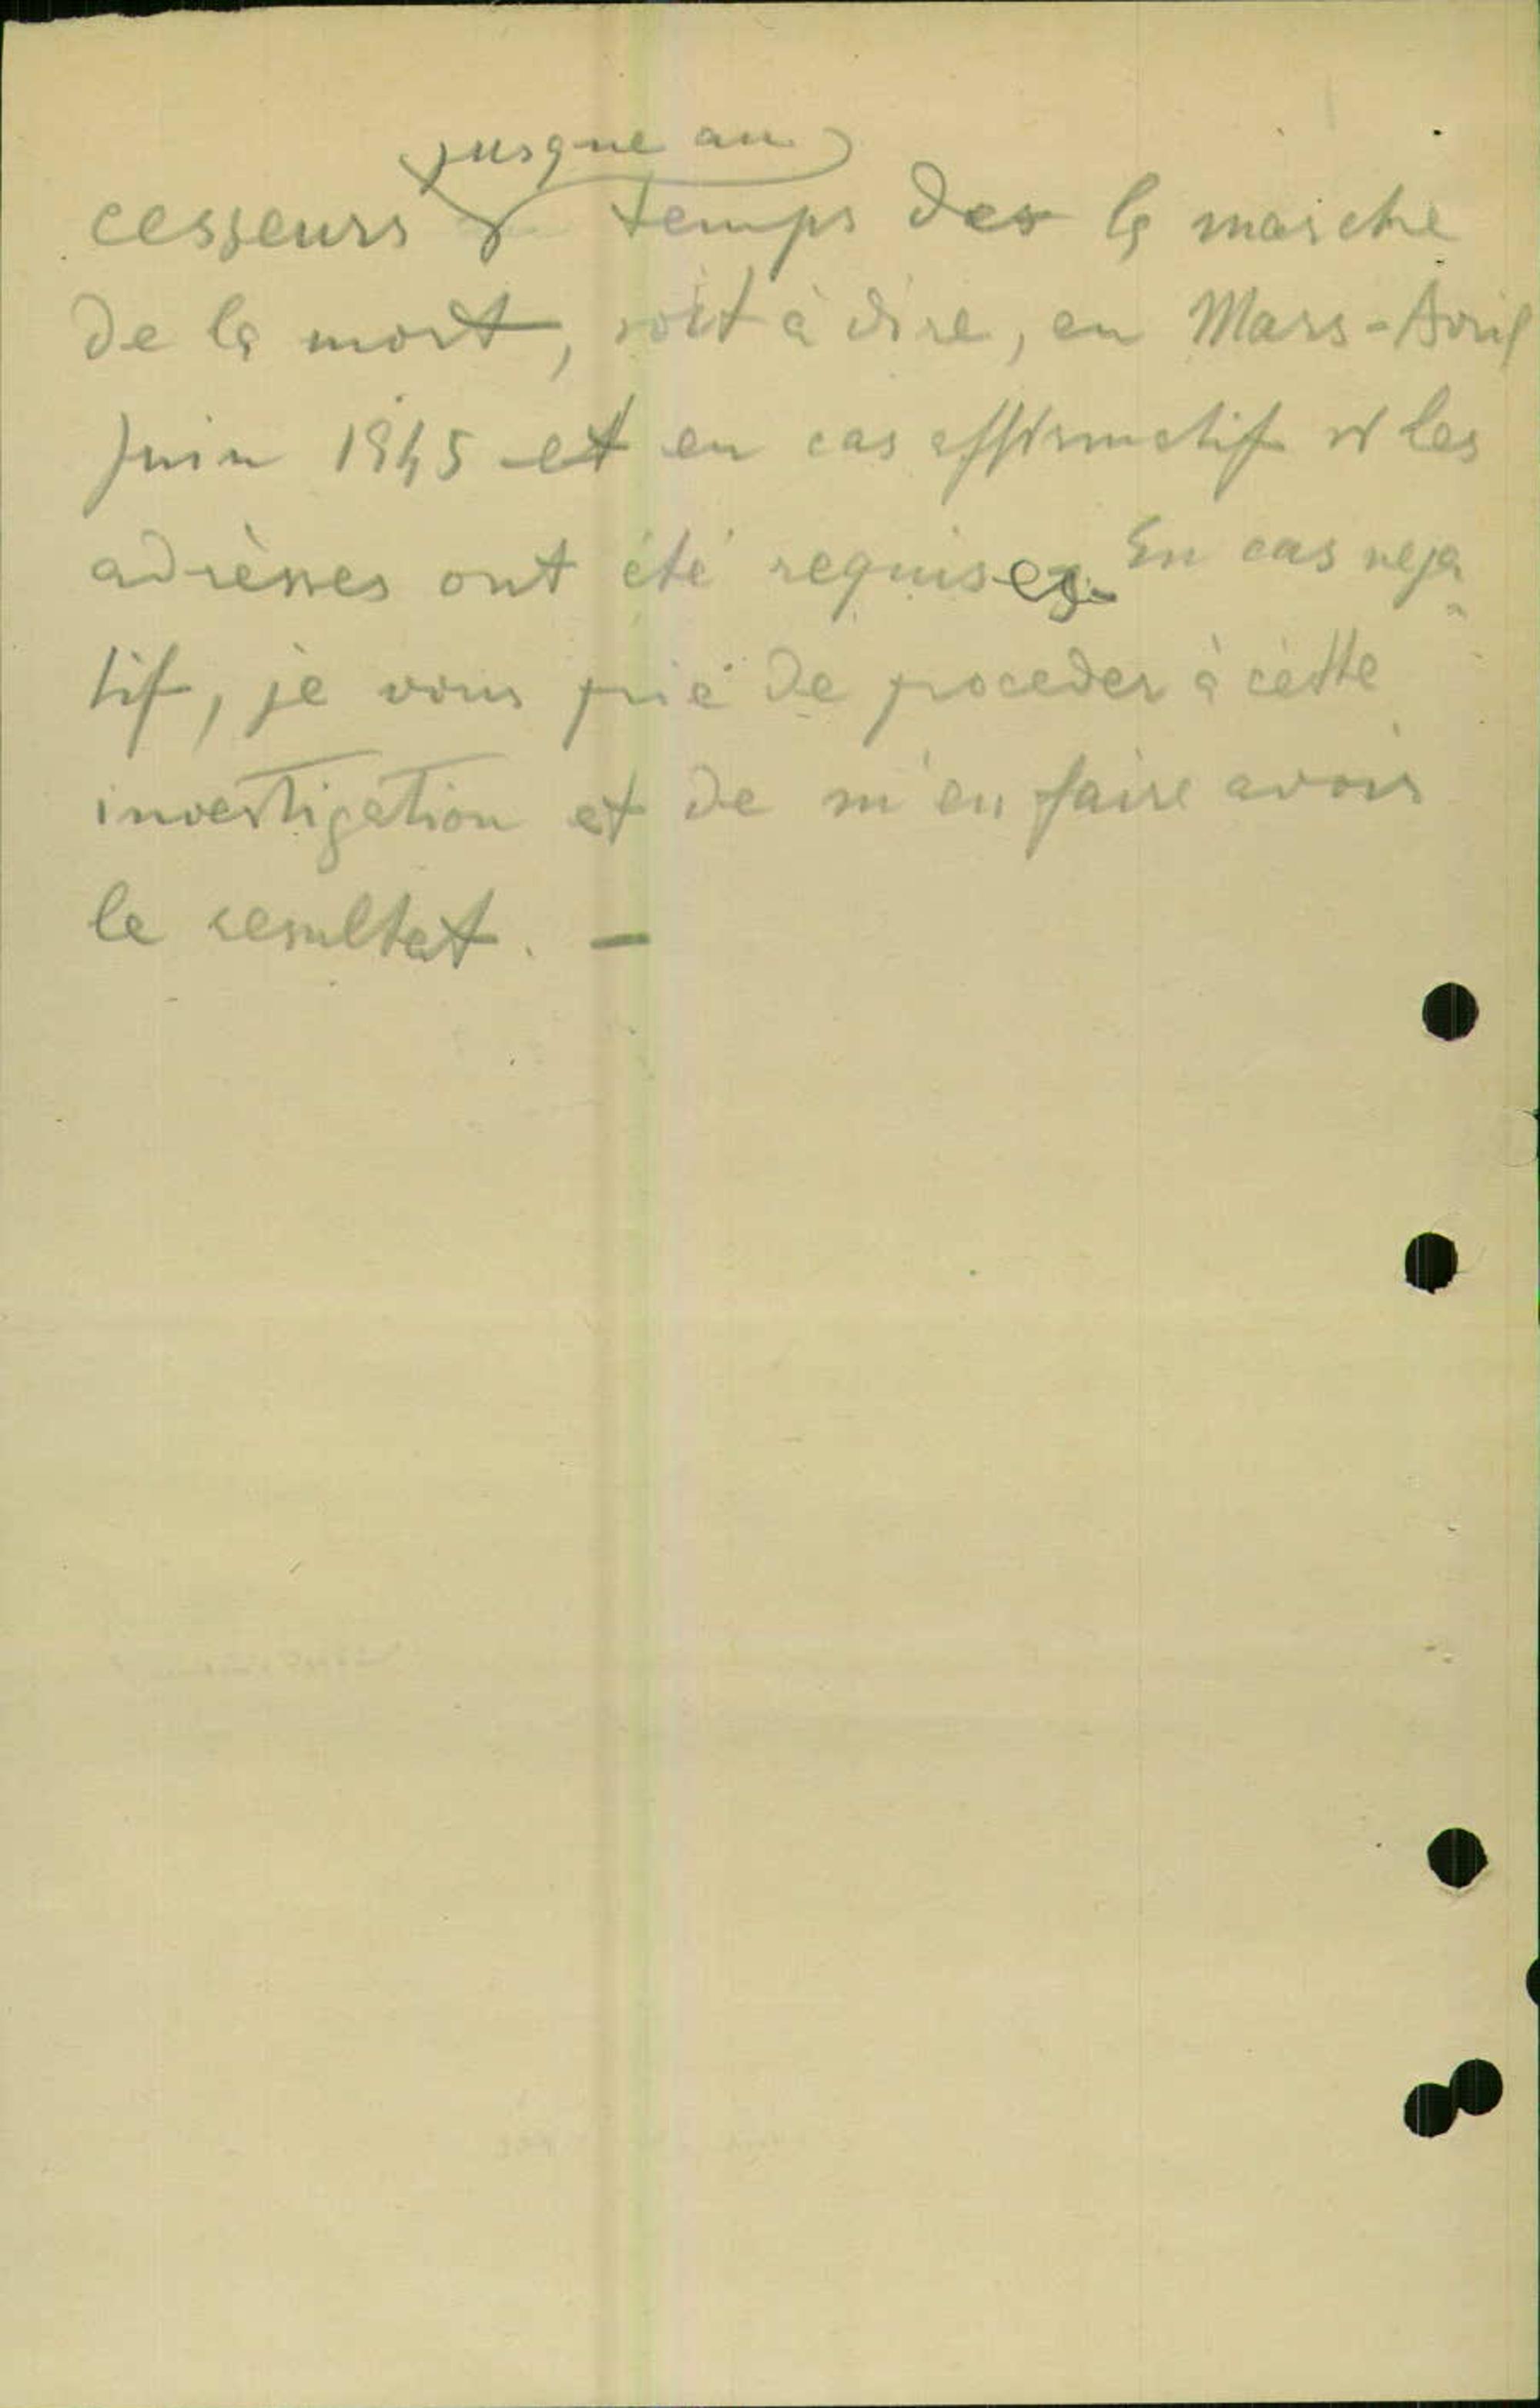 jusque au
cesseurs temps des la marche
de la mort, soit à dire, en Mars-Avril
Juin 1945 et en cas affirmatif si les
adrèsses ont été requises. En cas nega
tif, je vous prie de proceder à cette
investigation et de m'en faire avoir
le resultat. —